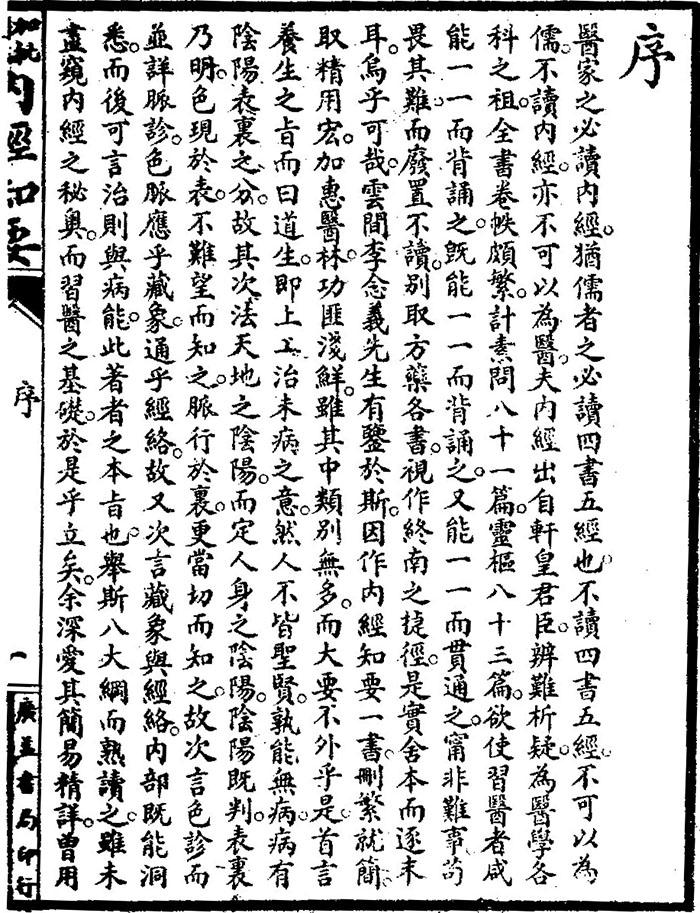 序
醫家之必讀內經。猶儒者之必讀四書五經也。不讀四書五經。不可以為
儒。不讀內經。亦不可以為醫。夫內經出自軒皇君臣。辨難析疑。為醫學各
科之祖。全書卷帙頗繁。計素問八十一篇。靈樞八十三篇。欲使習醫者咸
能一一而背誦之。旣能一一而背誦之。又能一一而貫通之。甯非難事。苟
畏其難而廢置不讀。別取方藥各書。視作終南之捷徑。是實舍本而逐末
耳。烏乎可哉。雲間李念義先生有鑒於斯。因作內經知要一書。刪繁就簡。
取精用宏。加惠醫林。功匪淺鮮。雖其中類別無多。而大要不外乎是。首言
養生之旨而曰道生。即上工治未病之意。然人不皆聖賢。孰能無病。病有
陰陽表裏之分。故其次法天地之陰陽。而定人身之陰陽。陰陽既判。表裏
乃明。色現於表。不難望而知之。脈行於裏。更當切而知之。故次言色診而
並詳脈診。色脈應乎藏象。通乎經絡。故又次言藏象與經絡。內部既能洞
悉。而後可言治則與病能。此著者之本旨也。舉斯八大綱而熟讀之。雖未
盡窺內經之秘奧。而習醫之基礎。於是乎立矣。余深愛其簡易精詳。曾用
加批內經知要
序
一
廣益書局印行